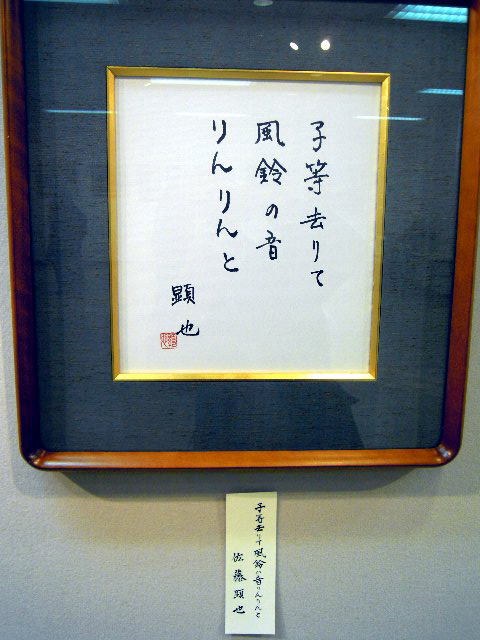 子等去りて
風鈴の音
りんりんと
顕也
子等去りて風鈴の音りんりんと
佐藤顕也